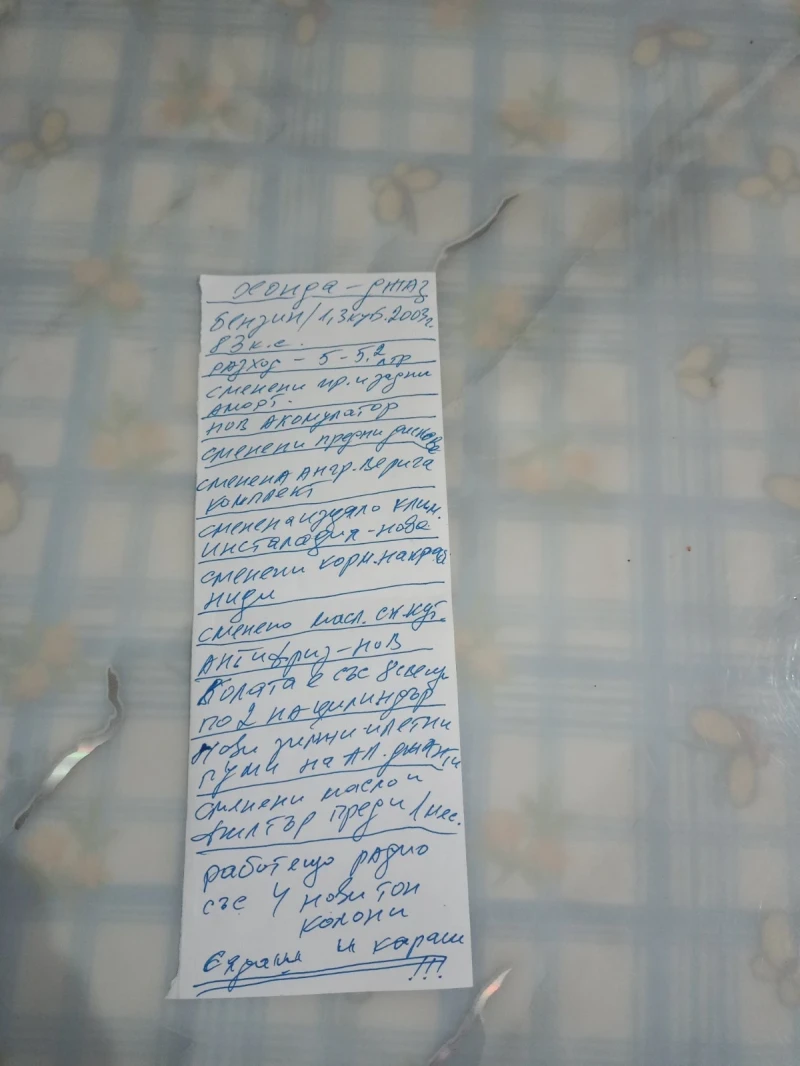 Хонда - джаз
бензин/1,3куб.2003г.
83 к.с.
разход - 5-5,2 лтр
сменени пр. и задни
аморт.
нов акомулатор
сменени предни дискове
сменена ангр. верига
комплект
сменена изцяло клим.
инсталация - нова
сменени корм. накрай
ници
сменено масл. ск.кут.
антифриз - нов
Колата е със 8 свещи
по 2 на цилиндър
Нови зимни и летни
гуми на ал. джанти
сменени масло и
филтър преди 1 мес.
работещо радио
със 4 нови тон
колони
и караш
!!!